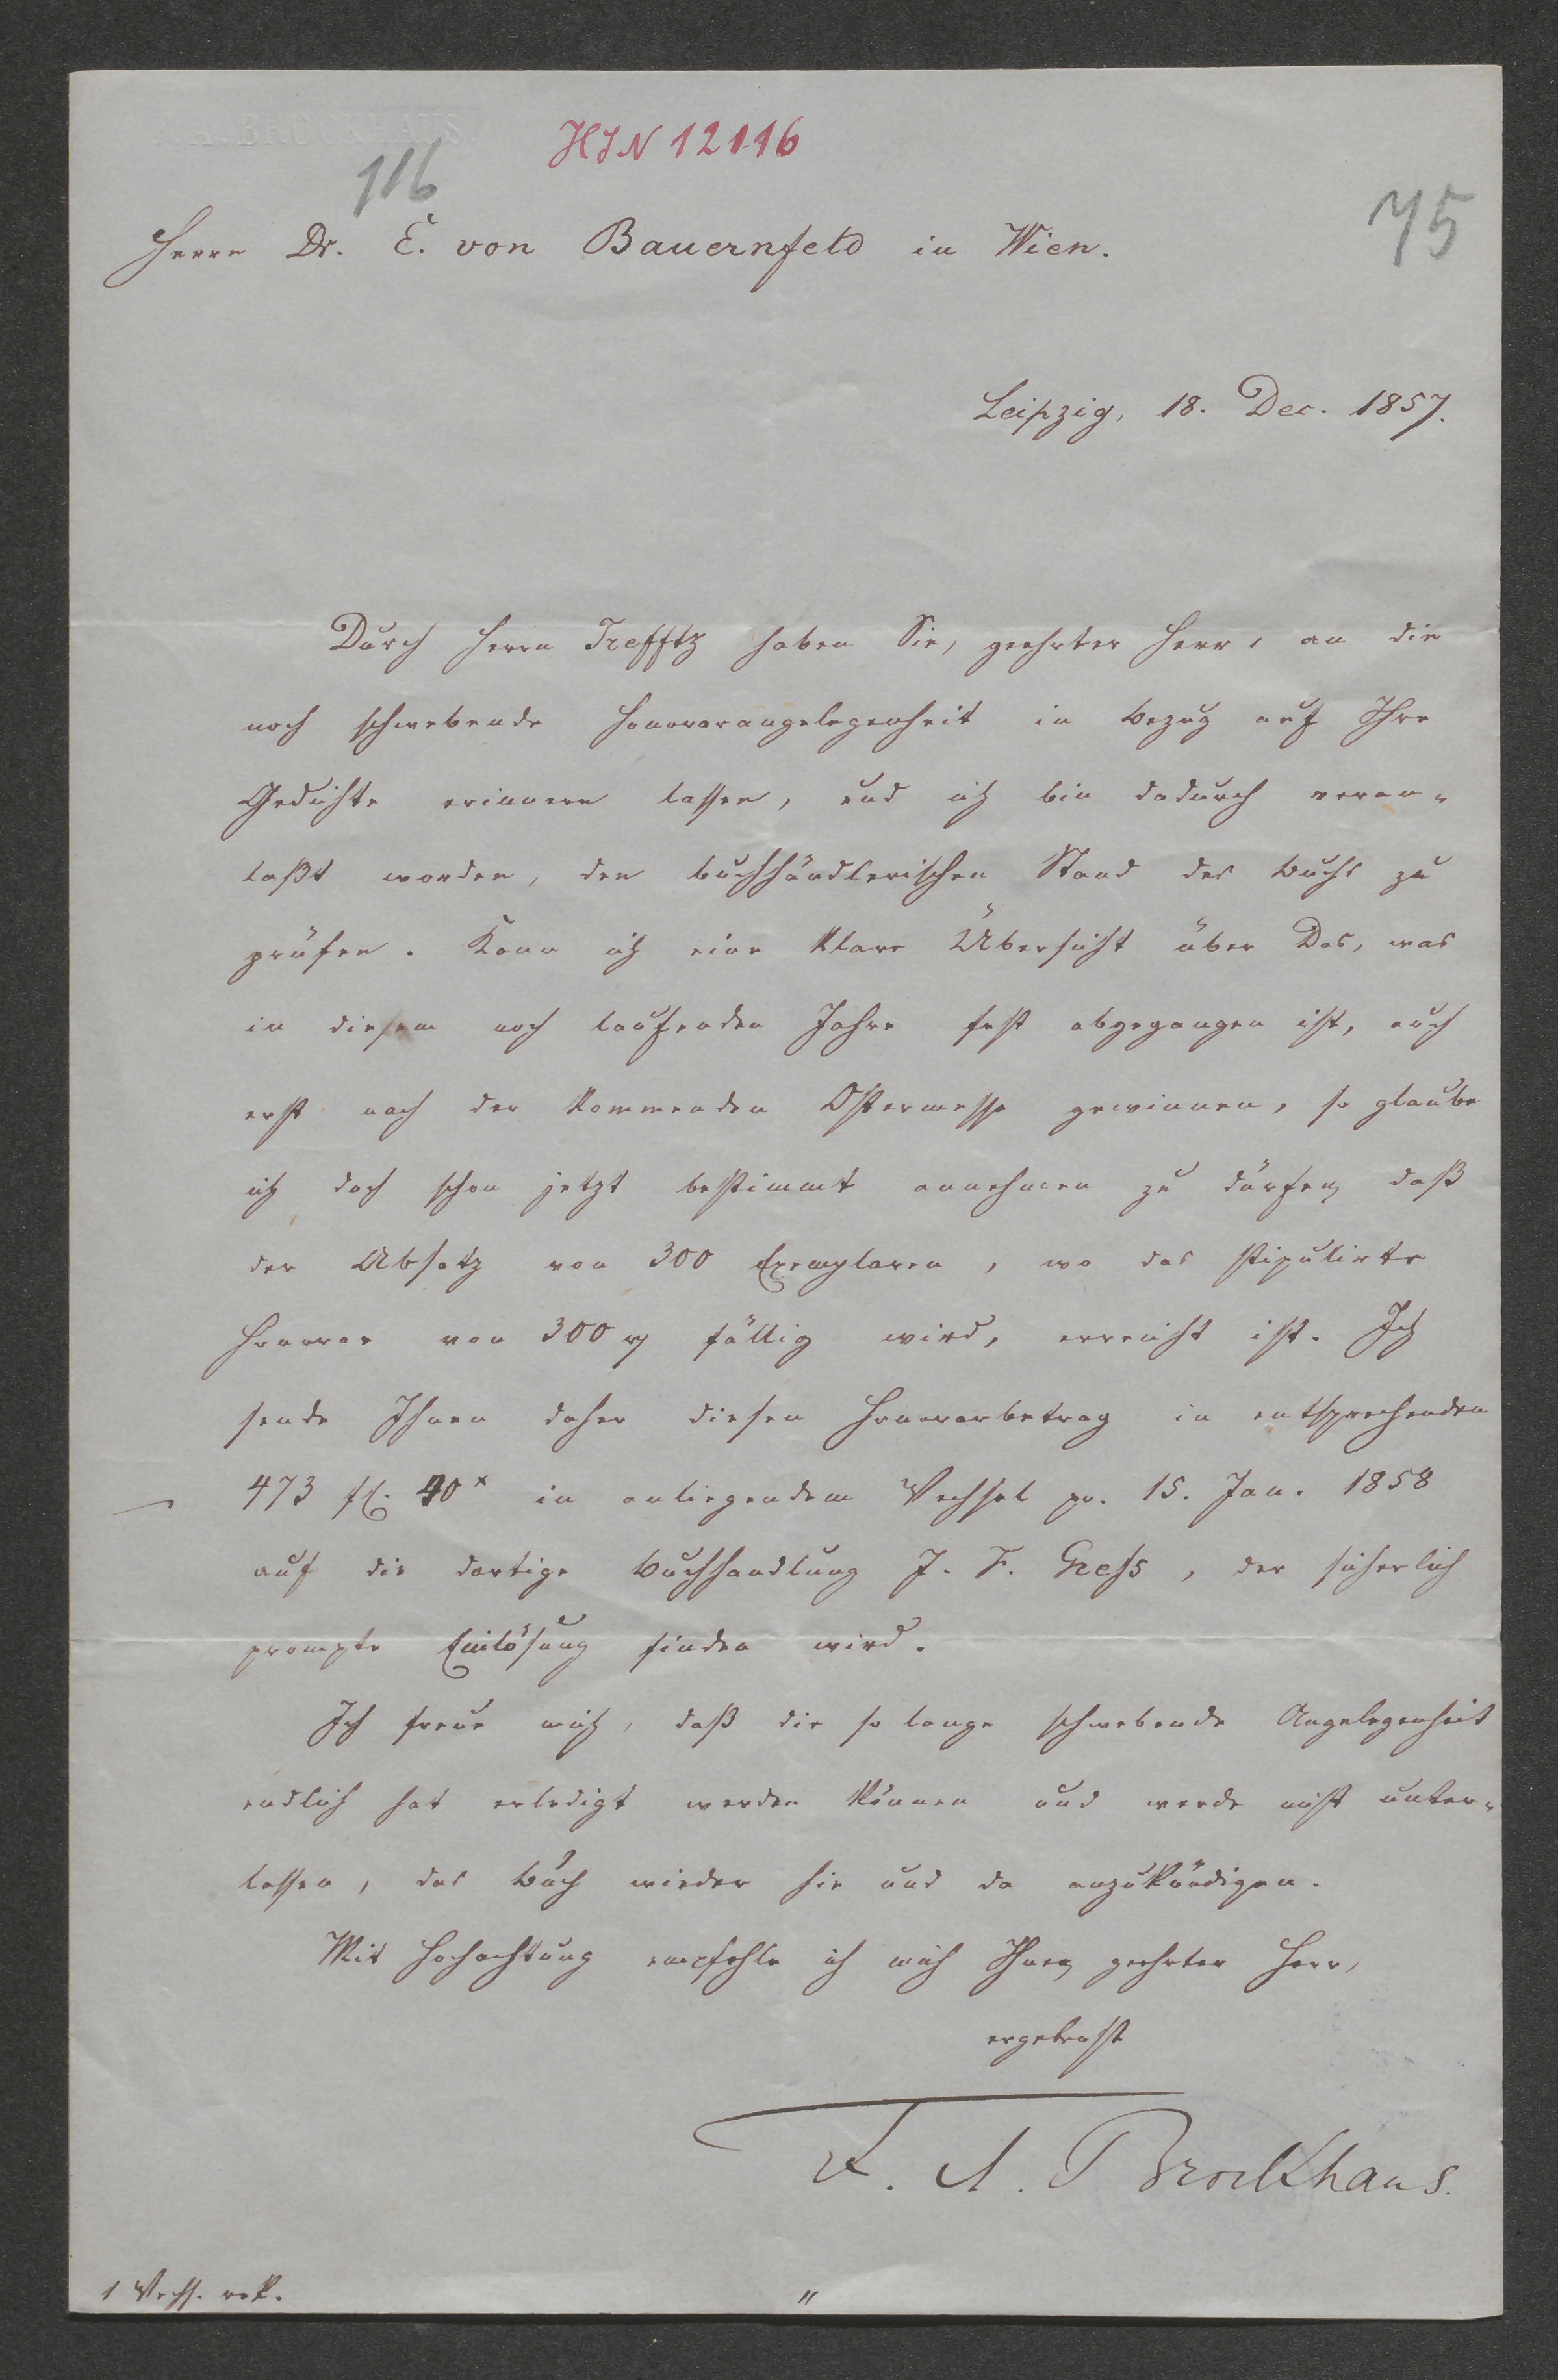 HIN 12116
116
75
Herrn Dr. E. von Bauernfeld in Wien.
Leipzig, 18. Dec. 1857.
Durch Herrn Trefftz haben Sie, geehrter Herr, an die
noch schwebende Honorarangelegenheit in Bezug auf Ihre
Gedichte erinnern lassen, und ich bin dadurch veran-
laßt worden, den buchhändlerischen Stand des Buchs zu
prüfen. Kann ich eine klare Übersicht über Das, was
in diesem noch laufenden Jahre fest abgegangen ist, auch
erst nach der kommenden Ostermesse gewinnen, so glaube
ich doch schon jetzt bestimmt annehmen zu dürfen, daß
der Absatz von 300 Exemplaren, wo das stipulirte
Honorar von 300 fällig wird, erreicht ist. Ich
sende Ihnen daher diesen Honorarbetrag in entsprechenden
473 fl. 40x in anliegendem Wechsel pr. 15. Jan. 1858
auf die dortige Buchhandlung J. F. Greß, der sicherlich
prompte Einlösung finden wird.
Ich freue mich, daß die so lange schwebende Angelegenheit
endlich hat erledigt werden können und werde nicht unter-
lassen, das Buch wieder hie und da anzukündigen.
Mit Hochachtung empfehle ich mich Ihnen, geehrter Herr,
ergebenst
F. A. Brockhaus.
1 Wechs.